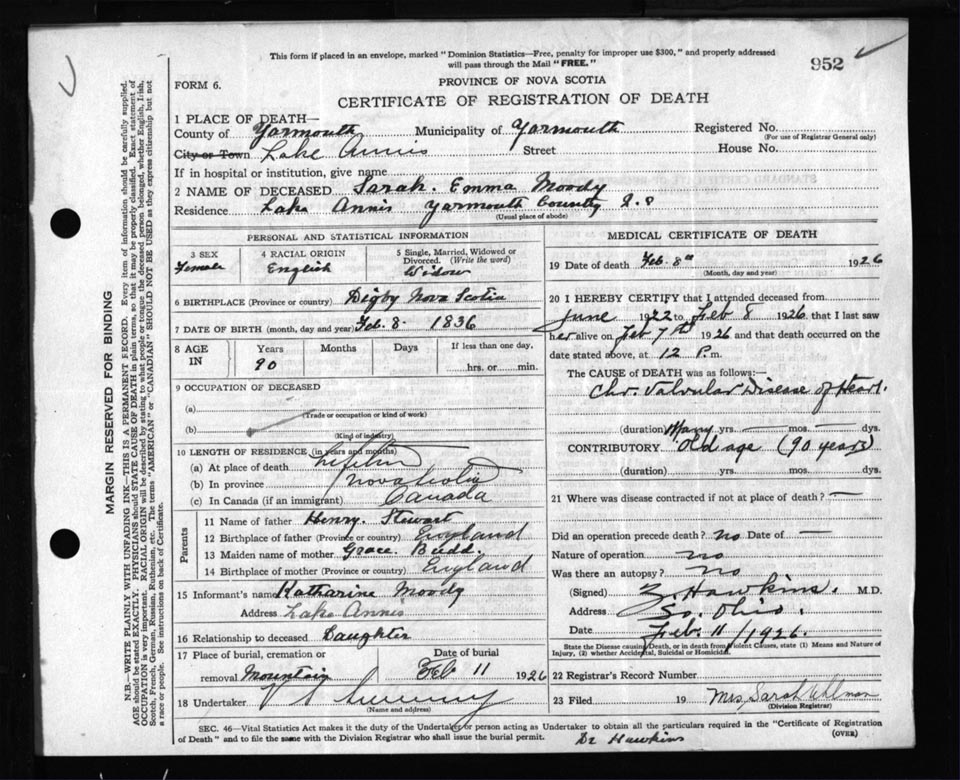 This form if placed in an envelope, marked "Dominion Statistics—Free, penalty for improper use $300," and properly addressed
will pass through the Mail "FREE."
952
FORM 6.
PROVINCE OF NOVA SCOTIA
CERTIFICATE OF REGISTRATION OF DEATH
1 PLACE OF DEATH—
County of Yarmouth Municipality of Yarmouth Registered No.
(For use of Registrar General only)
City or Town Lake Annis Street House No.
If in hospital or institution, give name
2 NAME OF DECEASED Sarah. Emma Moody
Residence Lake Annis Yarmouth County N.S
(Usual place of abode)
PERSONAL AND STATISTICAL INFORMATION
3 SEX
Female
4 RACIAL ORIGIN
English
5 Single, Married, Widowed or
Divorced. (Write the word)
Widow
6 BIRTHPLACE (Province or country) Digby Nova Scotia
7 DATE OF BIRTH (month, day and year) Feb. 8. 1836
8 AGE
IN
Years
90
Months
Days
If less than one day.
hrs. or min.
9 OCCUPATION OF DECEASED
(a)
(Trade or occupation or kind of work)
(b)
(Kind of industry)
10 LENGTH OF RESIDENCE (in years and months)
(a) At place of death
(b) In province Nova Scotia
(c) In Canada (if an immigrant) Canada
Parents
11 Name of father Henry. Stewart
12 Birthplace of father (Province or country) England
13 Maiden name of mother Grace. Budd.
14 Birthplace of mother (Province or country) England
15 Informant's name Katharine Moody
Address Lake Annis
16 Relationship to deceased Daughter
17 Place of burial, cremation or
removal Mountain
Date of burial
Feb 11 1926
18 Undertaker
(Name and address)
MEDICAL CERTIFICATE OF DEATH
19 Date of death Feb. 8th 1926
(Month, day and year)
20 I HEREBY CERTIFY that I attended deceased from
June 1922 to Feb 8 1926, that I last saw
her alive on Feb 7th 1926 and that death occurred on the
date stated above, at 12 P.m.
The CAUSE of DEATH was as follows:—
Chr. Valvular Disease of Heart.
(duration) Many yrs. — mos. — dys.
CONTRIBUTORY Old age (90 years)
(duration) yrs. mos. dys.
21 Where was disease contracted if not at place of death? —
Did an operation precede death? no Date of —
Nature of operation no
Was there an autopsy? no
(Signed) Z. Hawkins. M.D.
Address So. Ohio.
Date Feb. 11/1926.
State the Disease causing Death, or in death from Violent Causes, state (1) Means and Nature of
Injury, (2) whether Accidental, Suicidal or Homicidal.
22 Registrar's Record Number
23 Filed 19 Mrs Sarah Ullman
(Division Registrar)
SEC. 46—Vital Statistics Act makes it the duty of the Undertaker or person acting as Undertaker to obtain all the particulars required in the "Certificate of Registration
of Death" and to file the same with the Division Registrar who shall issue the burial permit.
(OVER)
Dr Hawkins
MARGIN RESERVED FOR BINDING
N.B.—WRITE PLAINLY WITH UNFADING INK—THIS IS A PERMANENT RECORD. Every item of information should be carefully supplied.
AGE should be stated EXACTLY. PHYSICIANS should STATE CAUSE OF DEATH in plain terms, so that it may be properly classified. Exact statement of
OCCUPATION is very important. RACIAL ORIGIN will be described by stating to what people or tongue the deceased person belonged, whether English, Irish,
Scotch, French, German, Russian, Ruthenian, etc. The terms "AMERICAN" or "CANADIAN" SHOULD NOT BE USED as they express citizenship but not
a race or people. See instructions on back of Certificate.